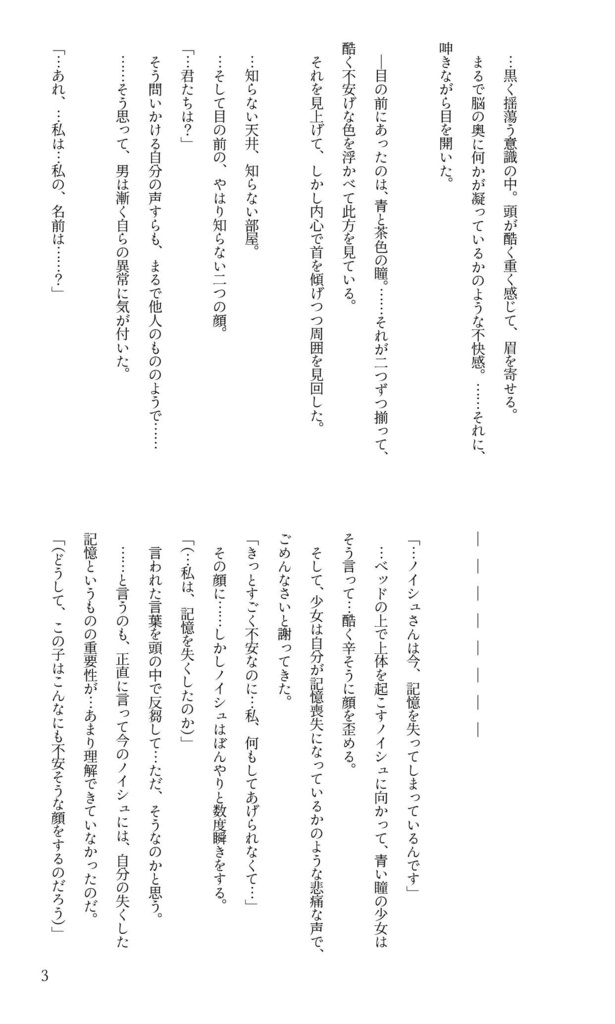 …黒く揺蕩う意識の中。頭が酷く重く感じて、眉を寄せる。
まるで脳の奥に何かが凝っているかのような不快感。……それに、
呻きながら目を開いた。
―目の前にあったのは、青と茶色の瞳。……それが二つずつ揃って、
酷く不安げな色を浮かべて此方を見ている。
それを見上げて、しかし内心で首を傾げつつ周囲を見回した。
…知らない天井、知らない部屋。
…そして目の前の、やはり知らない二つの顔。
「…君たちは？」
そう問いかける自分の声すらも、まるで他人のもののようで……
……そう思って、男は漸く自らの異常に気が付いた。
「…あれ、…私は…私の、名前は……？」
― ― ― ― ― ― ― ―
「…ノイシュさんは今、記憶を失ってしまっているんです」
…ベッドの上で上体を起こすノイシュに向かって、青い瞳の少女は
そう言って…酷く辛そうに顔を歪める。
そして、少女は自分が記憶喪失になっているかのような悲痛な声で、
ごめんなさいと謝ってきた。
「きっとすごく不安なのに…私、何もしてあげられなくて…」
その顔に……しかしノイシュはぼんやりと数度瞬きをする。
「(…私は、記憶を失くしたのか)」
言われた言葉を頭の中で反芻して…ただ、そうなのかと思う。
……と言うのも、正直に言って今のノイシュには、自分の失くした
記憶というものの重要性が…あまり理解できていなかったのだ。
「(どうして、この子はこんなにも不安そうな顔をするのだろう)」
3